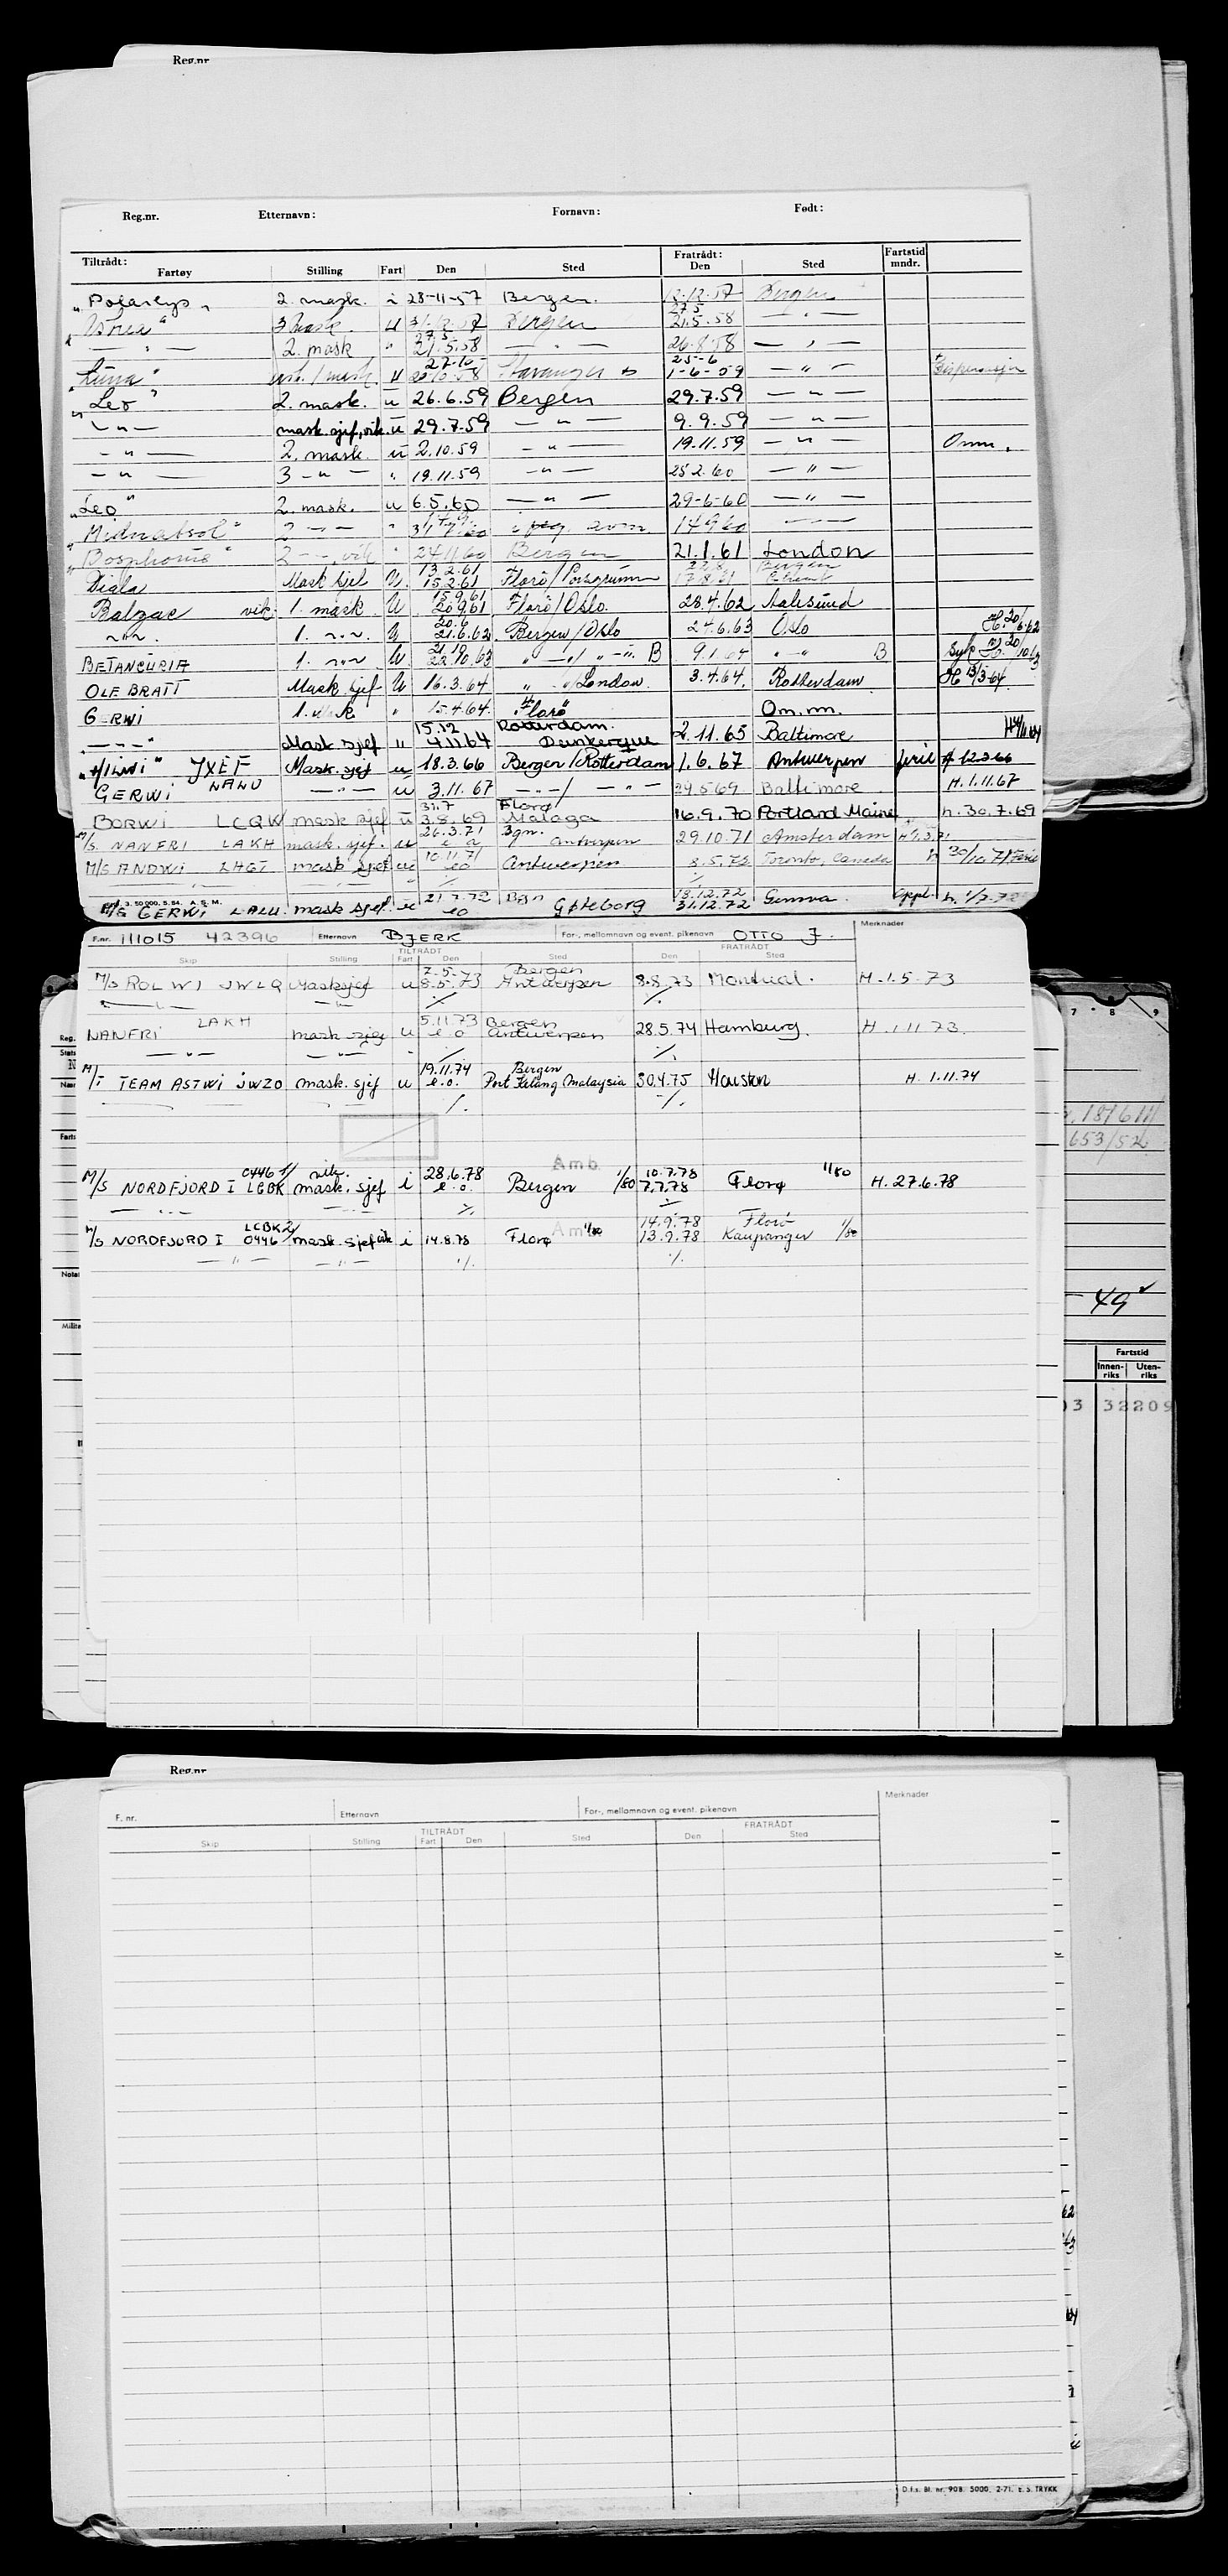 Reg.nr
Reg.nr. Etternavn: Fornavn: Født:
Tiltrådt: Fratrådt: Fartstid
Fartøy Stilling Fart Den Sted Den Sted mndr.
"Polarlys" 2. mask. i 28-11-57 Bergen. 12.12.57 Bergen
27.5
3 mask. u 31.12.57 Bergen 21.5.58 — " —
27.5
— " — 2. mask " 21.5.58 — " — 26.8.58 — " —
27.10 25-6
"Luna" u Stavanger 1-6-59 — " —
"Leo" 2. mask. u 26.6.59 Bergen 29.7.59 — " —
— " — mask.sjef, vik. u 29.7.59 — " — 9.9.59 — " —
— " — 2. mask u 2.10.59 — " 19.11.59 — " — Omm.
— " — 3 — " — " 19.11.59 — " — 25.2.60 — " —
"Leo" 2. mask. u 6.5.60 — " — 29-6-60 — " —
"Midnatsol" 2 — " — " 14.9.60 — " —
"Bosphorus" 2 — " — vik " 24.11.60 Bergen 21.1.61 London
13.2.61 Bergen
Digla Mask sjef U. 15.2.61 Florø/Porsgrunn
15.9.61
Balzac vik 1. mask. U 20.9.61 Florø/Oslo. 28.4.62 Aalesund
20.6
— " — 1. — " — U 21.6.62 Bergen/Oslo 24.6.63 Oslo H. 20/6.62
BETANCURIA 1. — " — U. 22.10.63 " — " / " — " B 9.1.64 " — " B Syk
OLE BRATT Mask sjef U 16.3.64 " /London. 3.4.64. Rotterdam H 13/3-64.
GERWI 1. mask " 15.4.64. "Florø" Om.m.
15.12 Rotterdam.
— " — Mask sjef " 4.11.64 Dunkerque 2.11.65 Baltimore
JXEF Mask. sjef u 18.3.66 Bergen/Rotterdam 1.6.67 Antwerpen ferie H 12.3.66
GERWI LALU — " — u 3.11.67 — " — / — " — 24.5.69 Baltimore H. 1.11.67
31.7 Florø/
BORWI LCQW mask sjef u 3.8.69 Malaga 16.9.70 Portland Maine h. 30.7.69
26.3.71 Bgn.
M/S. NANFRI LAKH mask. sjef. u e o Antwerpen 29.10.71 Amsterdam
10.11.71
M/S ANDWI LHGI mask sjef u eo Antwerpen 8.5.72 Toronto, Canada
21.7.72 Bgn 13.12.72
M/S GERWI LALU. mask sjef. u eo Gøteborg 31.12.72 Genova. Oppl. h. 1/7.72
Bl. 3. 50 000. 5. 54. A. S. M.
F.nr. 111015 42396 Etternavn BJERK For-, mellomnavn og event. pikenavn OTTO J. Merknader
TILTRÅDT FRATRÅDT
Skip Stilling Fart Den Sted Den Sted
2.5.73 Bergen
M/S ROLWI JWLQ Masksjef u 8.5.73 Antwerpen 8.8.73 Montreal. H. 1.5-73
— " — — " — ./. ./.
LAKH 5.11.73 Bergen
NANFRI mask sjef u e o Antwerpen 28.5.74 Hamburg. H. 1.11.73.
— " — — " — " ./. ./.
19.11.74 Bergen
M/T TEAM ASTWI JWZO mask. sjef u e.o. Port Kelang Malaysia 30.4.75 Houston H. 1.11.74
./. ./.
Amb.
0446 1/ vik. 28.6.78 10.7.78 1/80
M/S NORDFJORD I LCBK mask. sjef i e.o. Bergen 1/80 7.7.78 Florø H. 27.6.78
— " — ./. ./.
LCBK 2/ Amb 14.9.78 Florø
M/S NORDFJORD I 0446 mask.sjef vik i 14.8.78 Florø 1/80 13.9.78 Kaupanger 1/80
— " — — " — ./. ./.
7 8 9
653/52
49
Fartstid
Innen-riks Uten-riks
03 32209
Reg.nr
F. nr. Etternavn For-, mellomnavn og event. pikenavn Merknader
TILTRÅDT FRATRÅDT
Skip Stilling Fart Den Sted Den Sted
D.f.s. Bl. nr. 908. 5000. 2-71. E. S. TRYKK